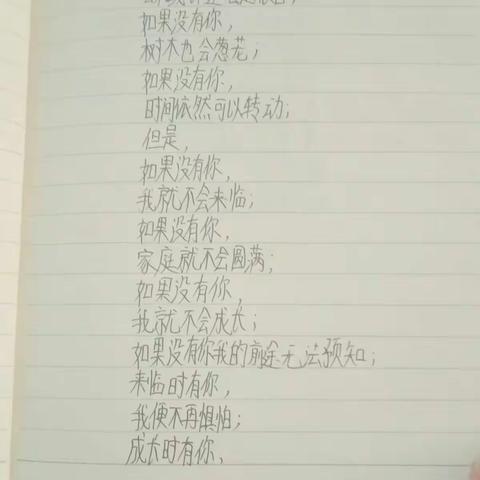 如果没有你,
树木也会葱茏;
如果没有你,
时间依然可以转动;
但是,
如果没有你,
我就不会来临;
如果没有你,
家庭就不会圆满;
如果没有你,
我就不会成长;
如果没有你我的前途无法预知;
来临时有你,
我便不再惧怕;
成长时有你,